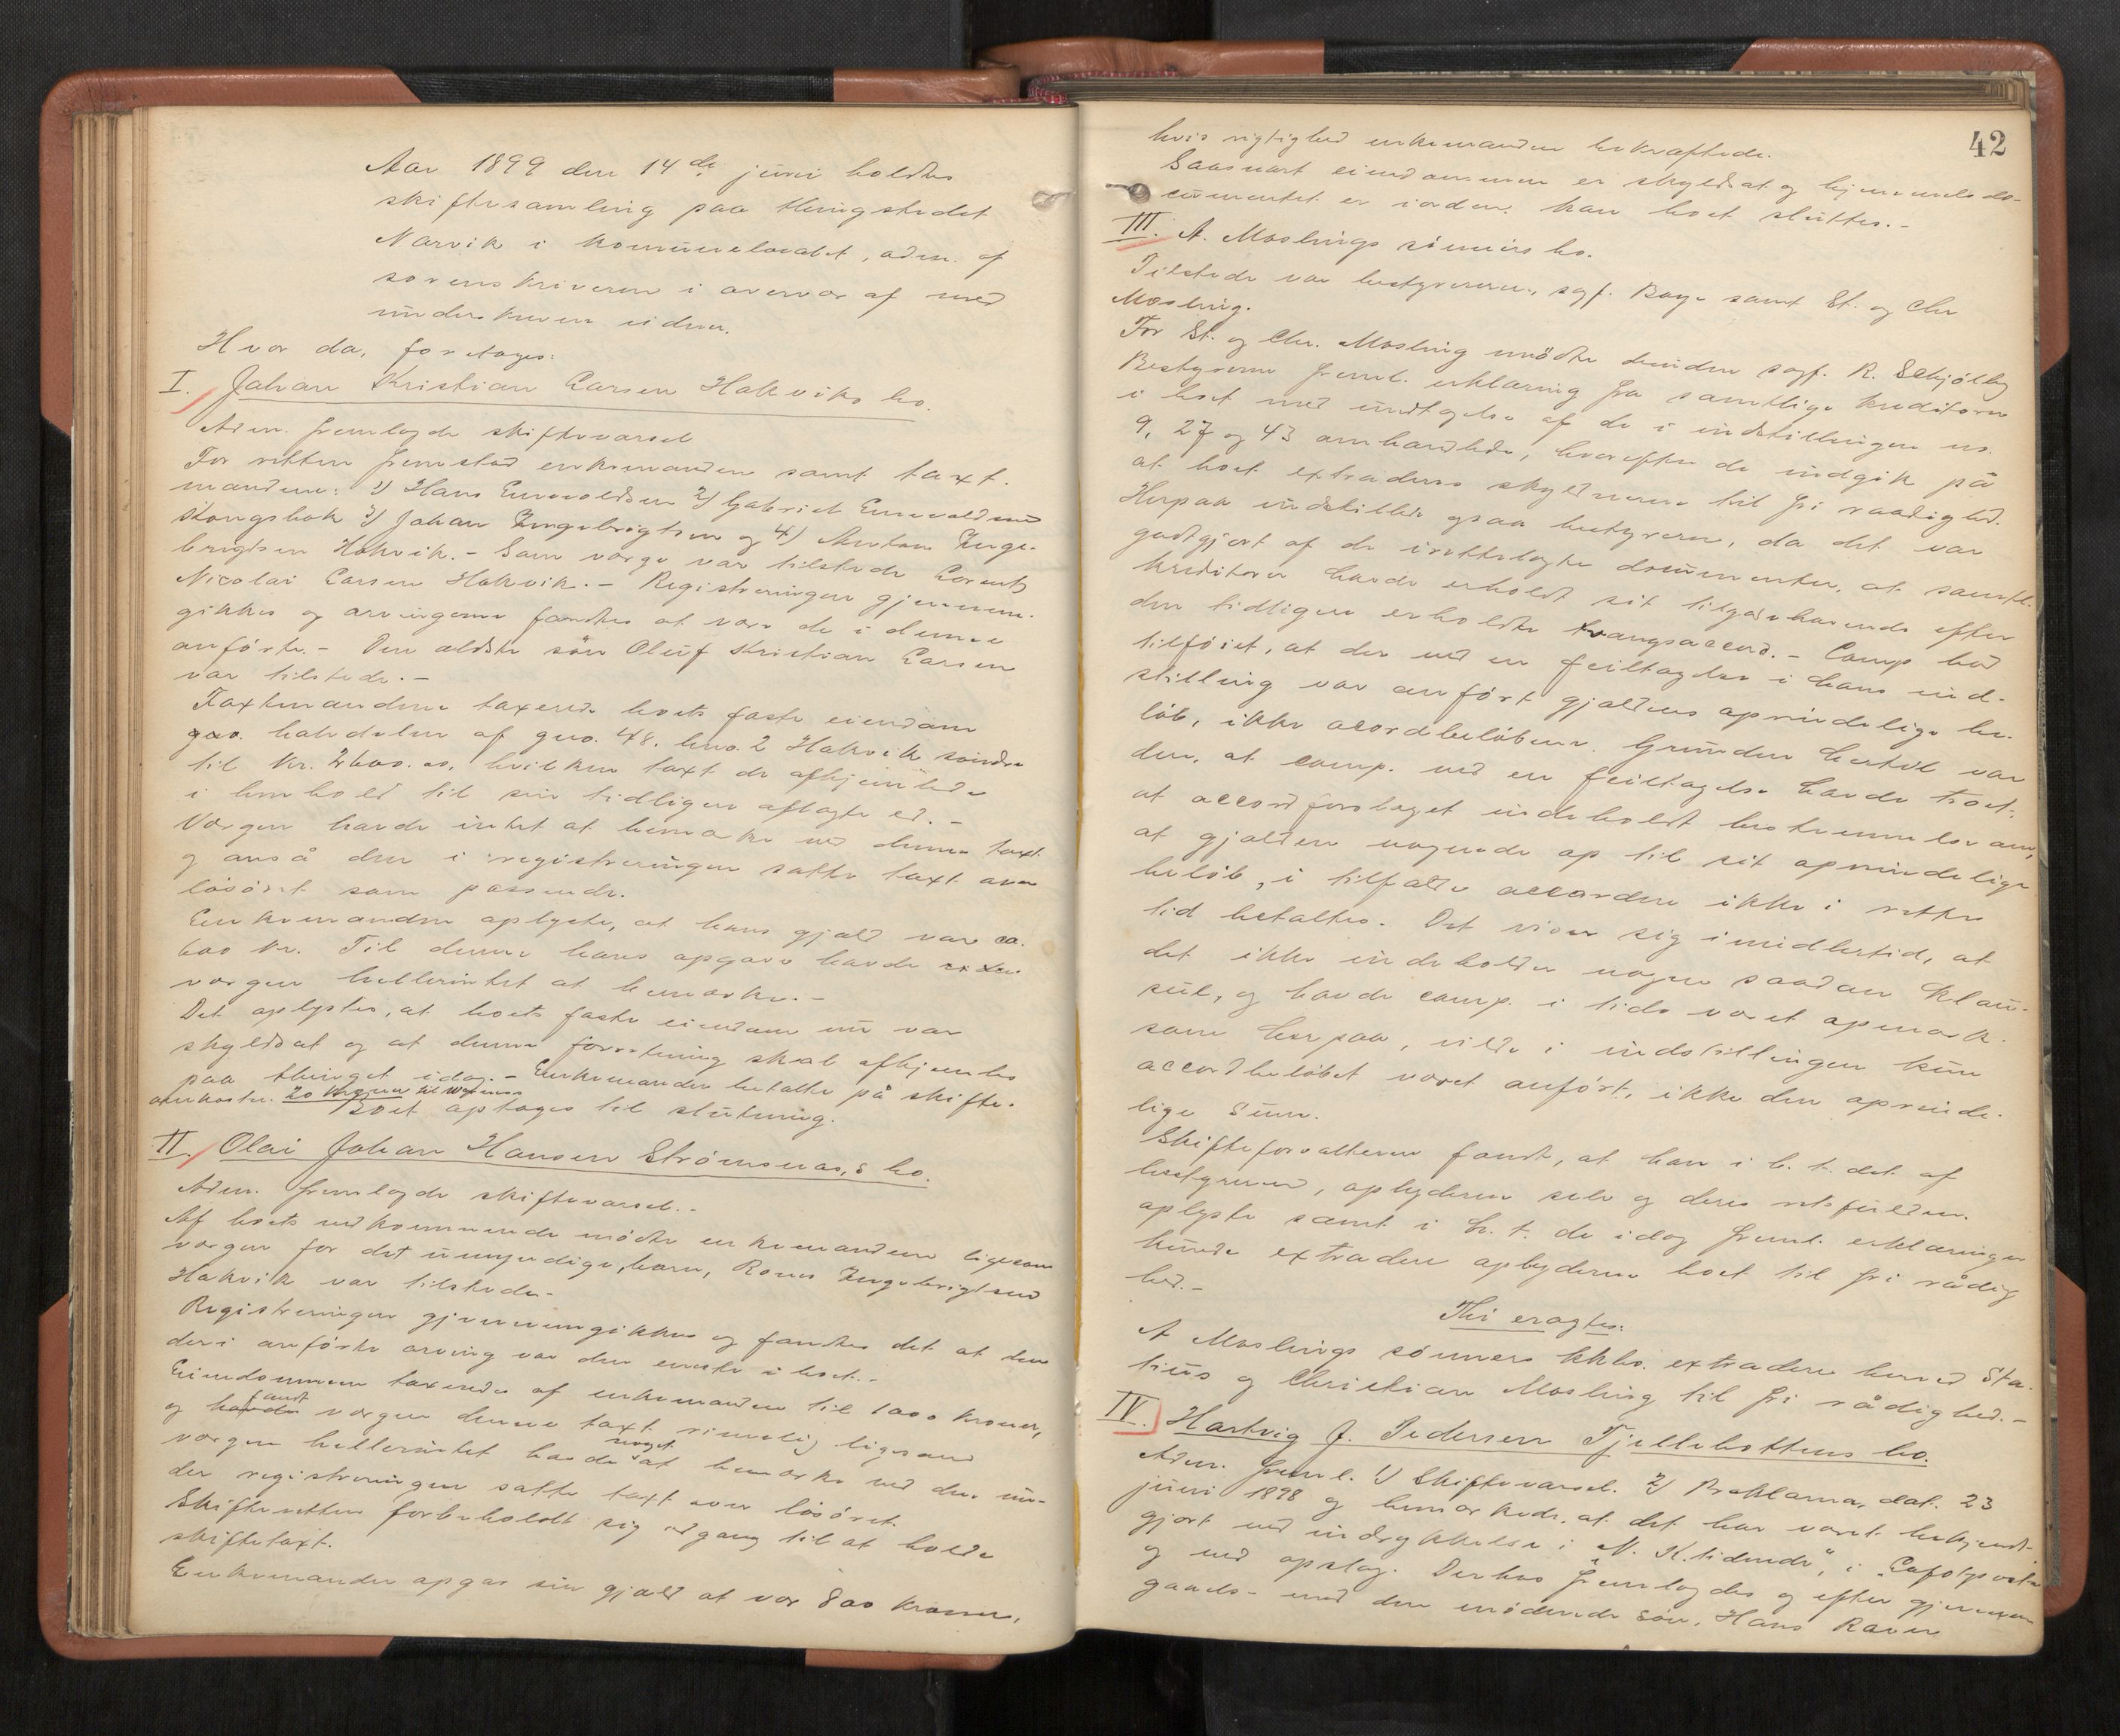 Aar 1899 den 14de juni holdtes
skiftesamling paa thingstedet
Narvik i kommunelocalet, adm. af
sorenskriveren i overvær af med
underskrevne vidner.
Hvor da, foretages:
I. Johan Kristian Larsen Hakviks bo.
Adm. fremlagde skiftevarsel
For retten fremstod enkemanden samt taxt-
mændene: 1) Hans Enevoldsen 2) Gabriel Enevoldsen
Kongsbak 3) Johan Ingebrigtsen og 4) Anton Inge-
brigtsen Hakvik. - Som værge var tilstede Lorents
Nicolai Larsen Hakvik. - Registreringen gjennem-
gikkes og arvingerne fandtes at være de i denne
anførte. - Den ældste søn Oluf Kristian Larsen
var tilstede. -
Taxtmændene taxerede boets faste eiendom
halvdelen af gno. 48. bno. 2 Hakvik søndre
til kr. 2600.00, hvilken taxt de afhjemlede
i henhold til sin tidligere aflagte ed. -
Værgen havde intet at bemærke ved denne taxt
og anså den i registreringen satte taxt over
løsøret som passende.
Enkemanden oplyste, at hans gjæld var ca.
600 kr. Til denne hans opgave havde
værgen hellerintet at bemærke. -
Det oplystes, at boets faste eiendom nu var
skyldsat og at denne forretning skal afhjemles
paa thinget idag. - Enkemanden betalte på skifte-
omkostn. 20 kroner til
Boet optoges til slutning.
II. Olai Johan Hansen Strømsnæs,s bo.
Adm. fremlagde skiftevarsel. -
Af boets vedkommende mødte enkemanden ligesom
værgen for det umyndige barn, Rones Ingebrigtsen
Hakvik var tilstede. -
Registreringen gjennemgikkes og fandtes det at den
deri anførte arving var den eneste i boet. -
Eiendommen taxeredes af enkemanden til 1000 kroner,
og havde fandt værgen denne taxt rimelig ligesom
værgen hellerintet havde noget at bemærke ved den un-
der registreringen satte taxt over løsøret.
Skifteretten forbeholdt sig adgang til at holde
skiftetaxt.
Enkemanden opgav sin gjæld at være 800 kroner,
42
hvis rigtighed enkemanden bekræftede.
Saasnart eiendommen er skyldsat og hjemmelsdo-
cumentet er iorden kan boet sluttes. -
III. A. Moslings sønners bo.
Tilstede var bestyreren, sagf. Bage samt St. og Chr
Mosling.
For St. og Chr. Mosling mødte desuden sagf. R. Schjølberg
Bestyreren freml. erklæring fra samtlige kreditorer
i boet med undtagelse af de i indstillingen no.
9, 27 og 43 omhandlede, hvorefter de indgik på
at boet extraderes skyldnerne til fri raadighed.
Herpaa indstilled ogsaa bestyreren, da det var
godtgjort af de irettelagte documenter, at samtl.
kreditorer havde erholdt sit tilgodehavende efter
den tidligere erholdte tvangsaccord. - Comp. bad
tilføiet, at der ved en feiltagelse i hans ind-
stilling var anført gjældens oprindelige be-
løb, ikke acordbeløbene. Grunden hertil var
den, at comp. ved en feiltagelse havde troet,
at accordforslaget indeholdt bestemmelse om,
at gjælden vognede op til sit oprindelige
beløb, i tilfælde accorden ikke i rette
tid betaltes. Det viser sig imidlertid, at
det ikke indeholder nogen saadan klau-
sul, og havde comp. i tide været opmærk-
som herpaa, vilde i indstillingen kun
accordbeløbet været anført, ikke den oprinde-
lige sum.
Skifteforvalteren fandt, at han i h. t. det af
bestyreren, opbyderne selv og deres retsfuldm.
oplyste samt i h. t. de idag freml. erklæringer
kunde extradere opbyderne boet til fri rådig
hed. -
Thi eragtes:
A Moslings sønners kkbo. extraderes herved Sta-
tius og Christian Mosling til fri rådighed. -
IV. Hartvig J. Pedersen Fjellbottens bo.
Adm. freml. 1) Skiftevarsel. 2) Proklama, dat. 23
juni 1898 og bemærkede, at det har været bekjendt-
gjort ved indrykkelse i "N. K.tidende", i "Lofotposten"
og ved opslag. Derhos fremlagdes og efter gjennem
gaaelse med den mødende søn, Hans Raven